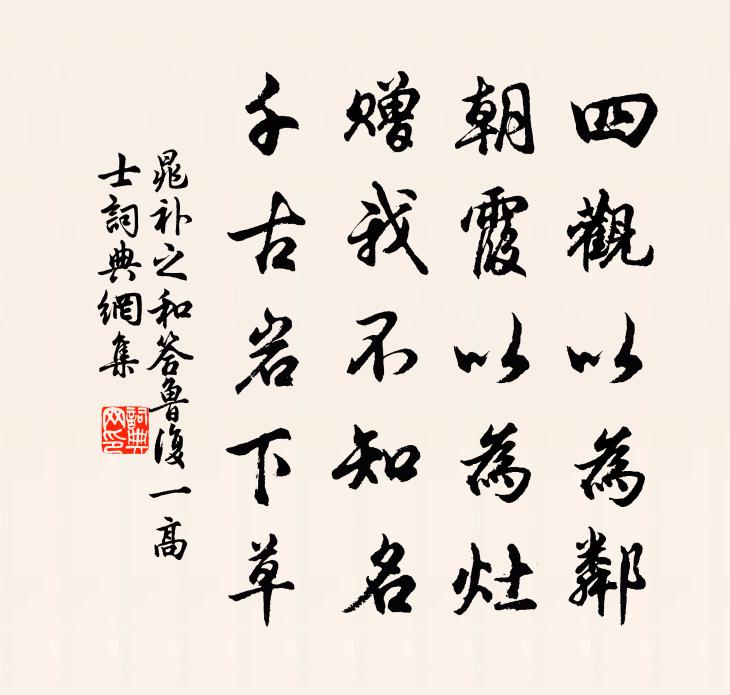 四觀以為鄰
朝霞以為灶
贈我不知名
千古岩下草
晁补之和答魯復一高
士詞典網集
詞典网印